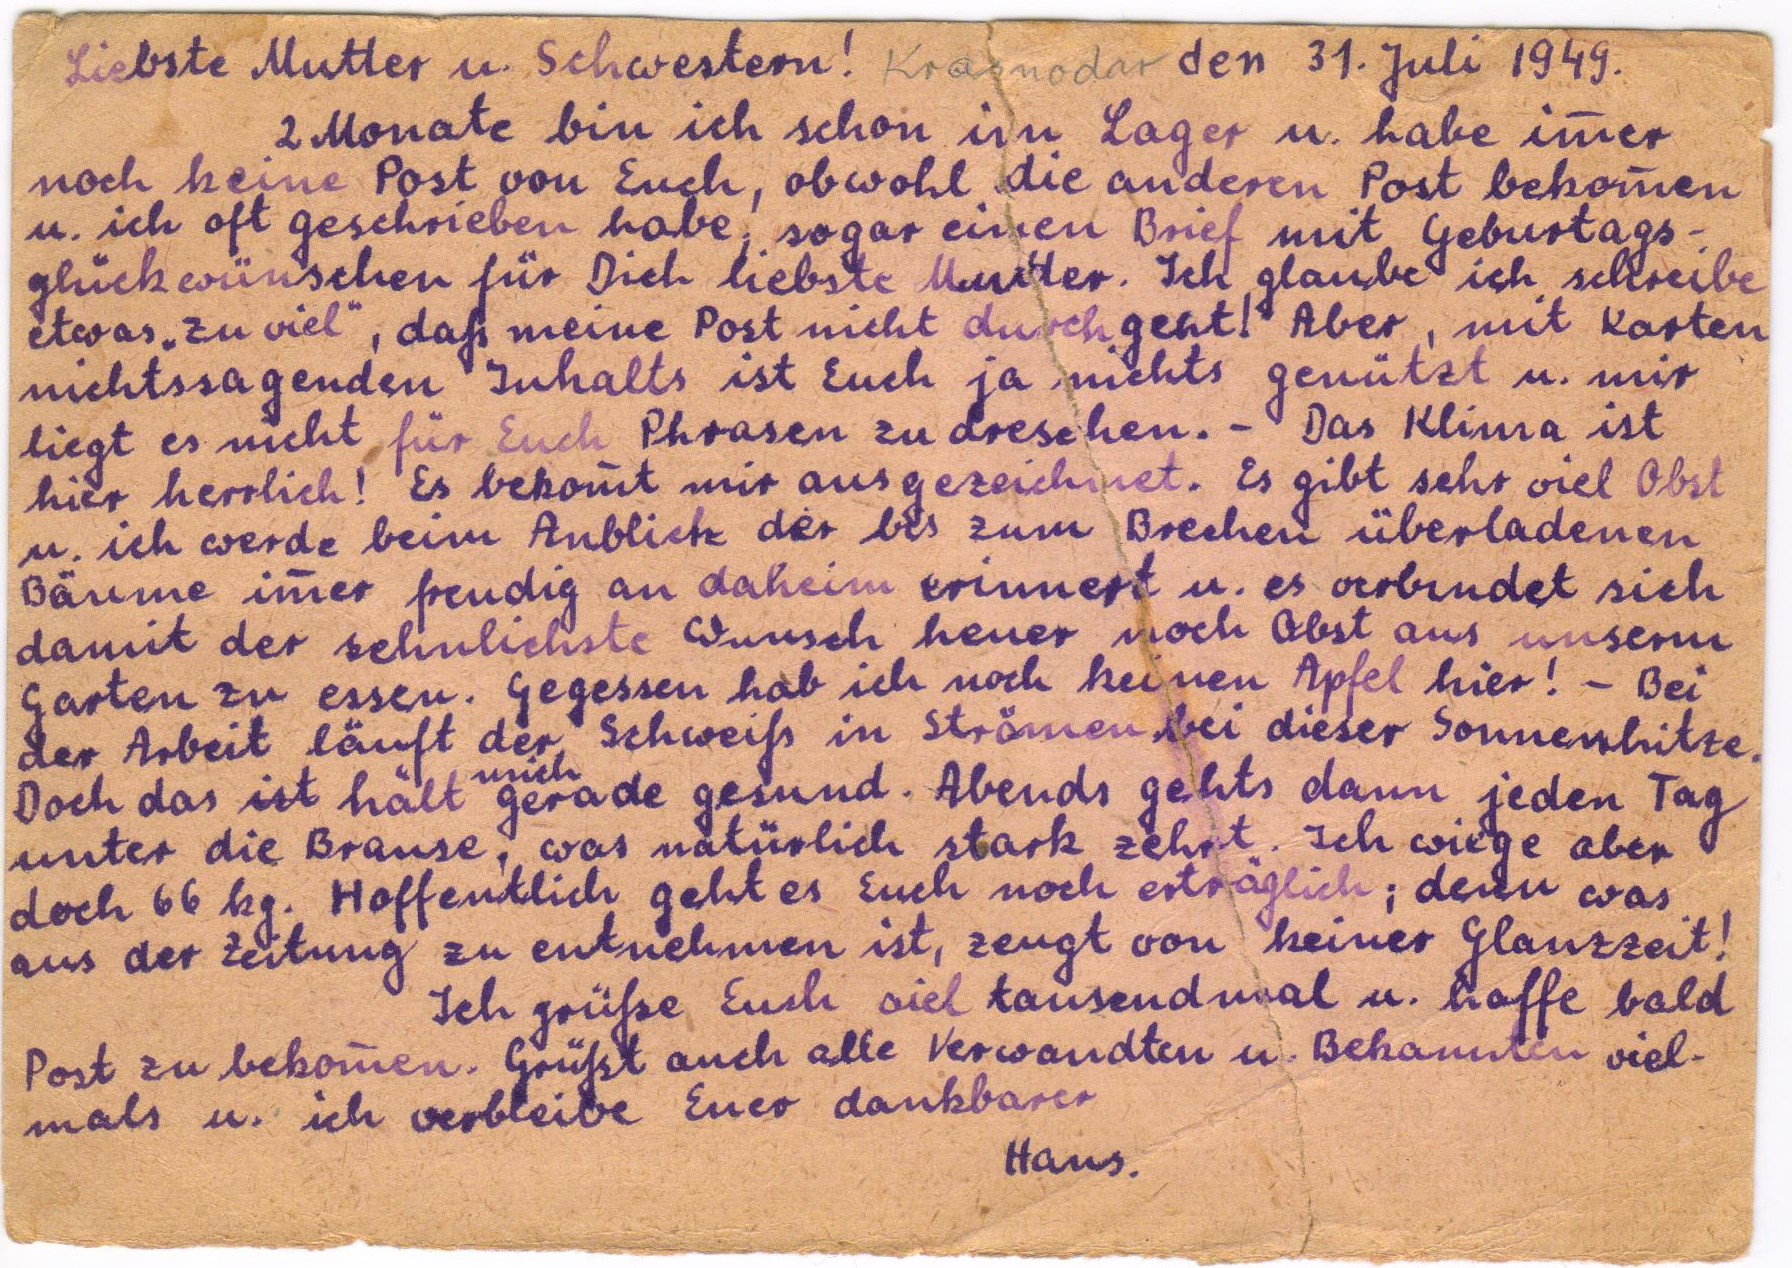 Liebste Mutter u. Schwestern! Krasnodar den 31. Juli 1949.
2 Monate bin ich schon im Lager u. habe im̅er
noch keine Post von Euch, obwohl die anderen Post bekom̅en
u. ich oft geschrieben habe, sogar einen Brief mit Geburtags-
glückwünschen für Dich liebste Mutter. Ich glaube ich schreibe
etwas „zu viel“, daß meine Post nicht durchgeht! Aber, mit Karten
nichtssagenden Inhalts ist Euch ja nichts genützt u. mir
liegt es nicht für Euch Phrasen zu dreschen. - Das Klima ist
hier herrlich! Es bekom̅t mir ausgezeichnet. Es gibt sehr viel Obst
u. ich werde beim Anblick der bis zum Brechen überladenen
Bäume im̅er freudig an daheim erinnert u. es verbindet sich
damit der sehnlichste Wunsch heuer noch Obst aus unserm
Garten zu essen. Gegessen hab ich noch keinen Apfel hier! - Bei
der Arbeit läuft der Schweiß in Strömen bei dieser Sonnenhitze.
Doch das ist hält mich gerade gesund. Abends gehts dann jeden Tag
unter die Brause, was natürlich stark zehrt. Ich wiege aber
doch 66 kg. Hoffentlich geht es Euch noch erträglich; denn was
aus der Zeitung zu entnehmen ist, zeugt von keiner Glanzzeit!
Ich grüße Euch viel tausendmal u. hoffe bald
Post zu bekom̅en. Grüßt auch alle Verwandten u. Bekannten viel-
mals u. ich verbleibe Euer dankbarer
Hans.